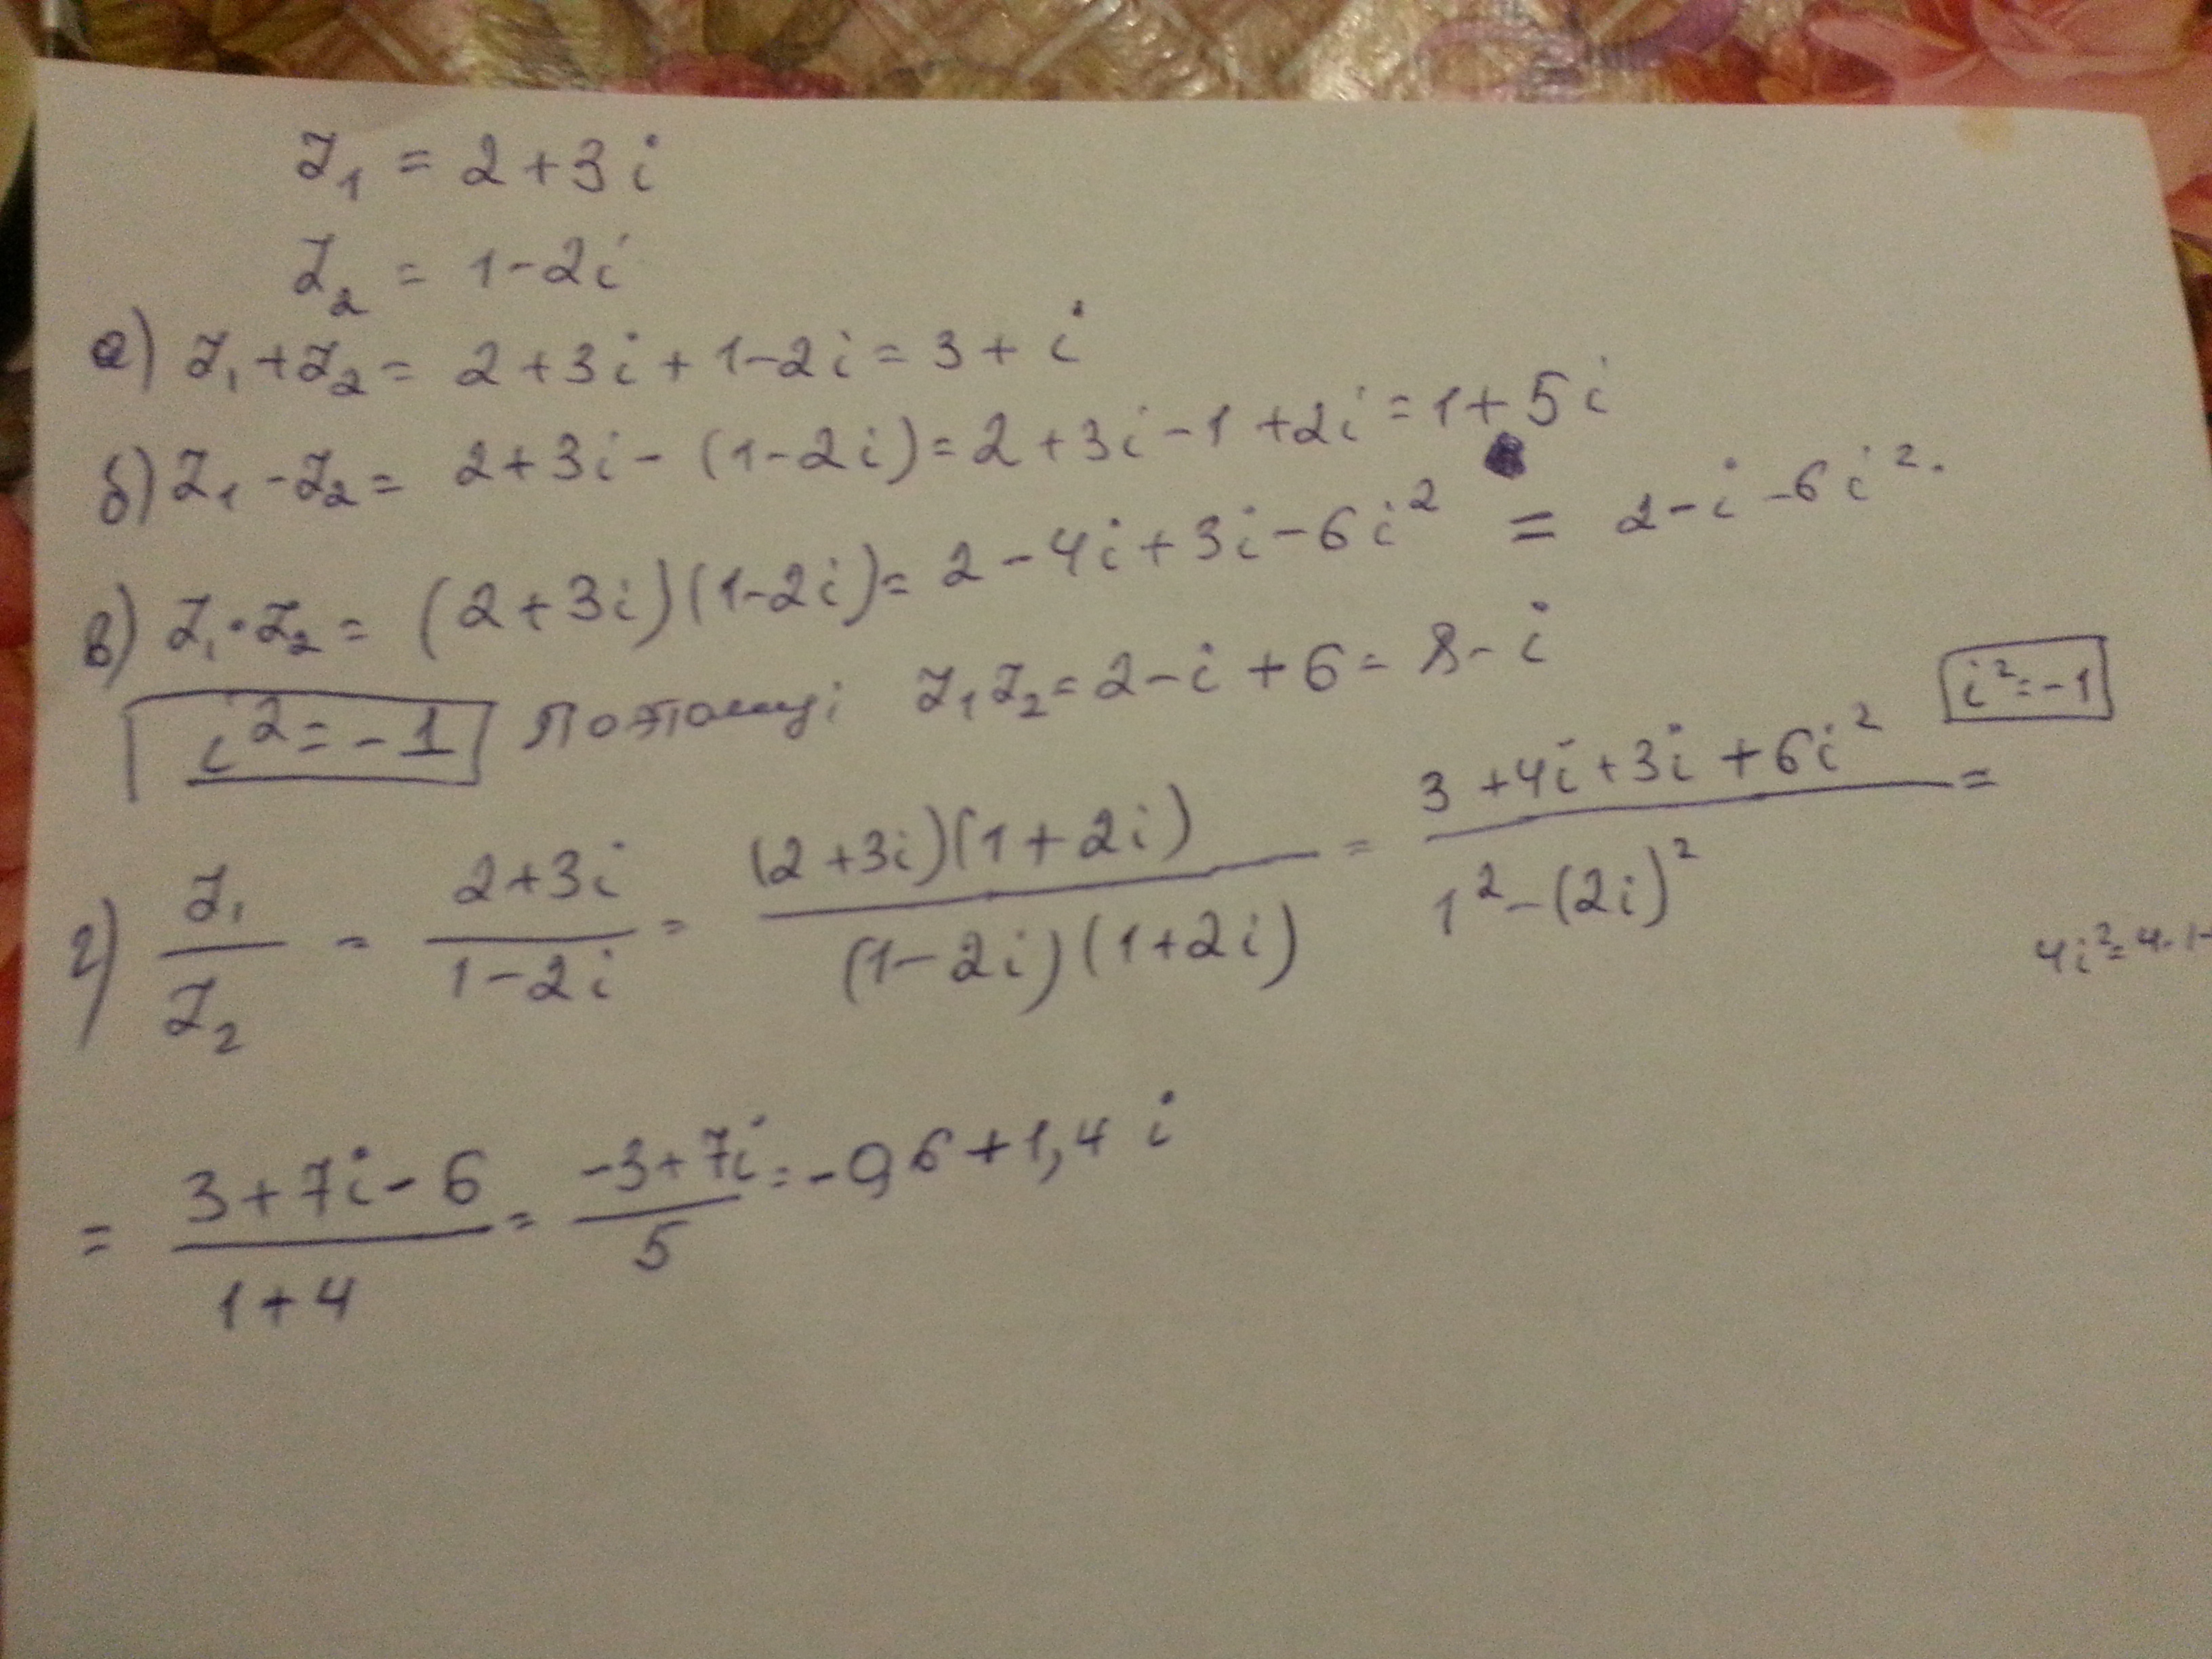 z₁ = 2 + 3i
z₂ = 1 - 2i
а) z₁ + z₂ = 2 + 3i + 1 - 2i = 3 + i
б) z₁ - z₂ = 2 + 3i - (1 - 2i) = 2 + 3i - 1 + 2i = 1 + 5i
в) z₁ · z₂ = (2 + 3i)(1 - 2i) = 2 - 4i + 3i - 6i² = 2 - i - 6i².
i² = -1 Поэтому: z₁z₂ = 2 - i + 6 = 8 - i
i² = -1
г) z₁/z₂ = (2 + 3i)/(1 - 2i) = ((2 + 3i)(1 + 2i))/((1 - 2i)(1 + 2i)) = (3 + 4i + 3i + 6i²)/(1² - (2i)²) =
4i² = 4 · 1 -
= (3 + 7i - 6)/(1 + 4) = (-3 + 7i)/5 = -0,6 + 1,4 i